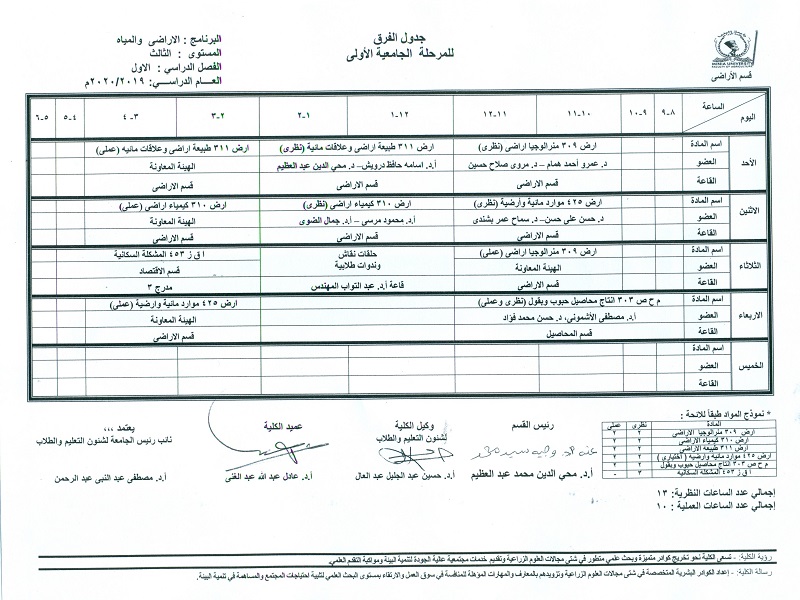 البرنامج : الاراضى والمياه
المستوى : الثالث
الفصل الدراسي : الاول
العام الدراسي: ٢٠٢٠/٢٠١٩م
جدول الفرق
للمرحلة الجامعية الأولى
MINIA UNIVERSITY
قسم الأراضى
الساعة
اليوم
٨-٩
٩-١٠
١٠-١١
١١-١٢
١٢-١
١-٢
٢-٣
٣-٤
٤-٥
٥-٦
الأحد
اسم المادة
ارض ٣٠٩ منرالوجيا اراضى (نظرى)
ارض ٣١١ طبيعة اراضى وعلاقات مائية (نظرى)
ارض ٣١١ طبيعة اراضى وعلاقات مائيه (عملى)
العضو
د. عمرو أحمد همام – د. مروى صلاح حسين
أ.د. اسامه حافظ درويش– د. محي الدين عبد العظيم
الهيئة المعاونة
القاعة
قسم الاراضى
قسم الاراضى
قسم الاراضى
الاثنين
اسم المادة
ارض ٤٢٥ موارد مائية وأرضية (نظرى)
ارض ٣١٠ كيمياء اراضى (نظرى)
ارض ٣١٠ كيمياء اراضى (عملى)
العضو
د. حسن على حسن– د. سماح عمر بشندى
أ.د. محمود مرسى – أ.د. جمال الضوى
الهيئة المعاونة
القاعة
قسم الاراضى
قسم الاراضى
قسم الاراضى
الثلاثاء
اسم المادة
ارض ٣٠٩ منرالوجيا اراضى (عملى)
حلقات نقاش
وندوات طلابية
ا ق ز ٤٥٣ المشكلة السكانية
العضو
الهيئة المعاونة
قسم الاقتصاد
القاعة
قسم الأراضى
قاعة أ.د. عبد التواب المهندس
مدرج ٣
الاربعاء
اسم المادة
م ح ص ٣٠٣ انتاج محاصيل حبوب وبقول (نظرى وعملى)
ارض ٤٢٥ موارد مائية وارضية (عملى)
العضو
أ.د. مصطفى الأشمونى، د. حسن محمد فؤاد
الهيئة المعاونة
القاعة
قسم المحاصيل
قسم الاراضى
الخميس
اسم المادة
العضو
القاعة
* نموذج المواد طبقاً للائحة :
المادة نظرى عملى
ارض ٣٠٩ منرالوجيا الاراضى ٢ ٢
ارض ٣١٠ كيمياء الاراضى ٢ ٢
ارض ٣١١ طبيعه الاراضى ٢ ٢
ارض ٤٢٥ موارد مائية وارضيه ( اختيارى ) ٢ ٢
م ح ص ٣٠٣ انتاج محاصيل حبوب وبقول ٢ ٢
ا ق ز ٤٥٣ المشكله السكانيه -
إجمالي عدد الساعات النظرية : ١٣
إجمالي عدد الساعات العملية : ١٠
رئيس القسم
أ.د. محي الدين محمد عبد العظيم
وكيل الكلية
لشئون التعليم والطلاب
أ.د. حسين عبد الجليل عبد العال
عميد الكلية
أ.د. عادل عبد الله عبد الغنى
يعتمد ،،،
نائب رئيس الجامعة لشئون التعليم والطلاب
أ.د. مصطفى عبد النبى عبد الرحمن
رؤية الكلية: - تسعى الكلية نحو تخريج كوادر متميزة وبحث علمي متطور في شتى مجالات العلوم الزراعية وتقديم خدمات مجتمعية عالية الجودة لتنمية البيئة ومواكبة التقدم العلمي.
رسالة الكلية: - إعداد الكوادر البشرية المتخصصة في شتى مجالات العلوم الزراعية وتزويدهم بالمعارف والمهارات المؤهلة للمنافسة في سوق العمل والارتقاء بمستوى البحث العلمي لتلبية احتياجات المجتمع والمساهمة في تنمية البيئة.